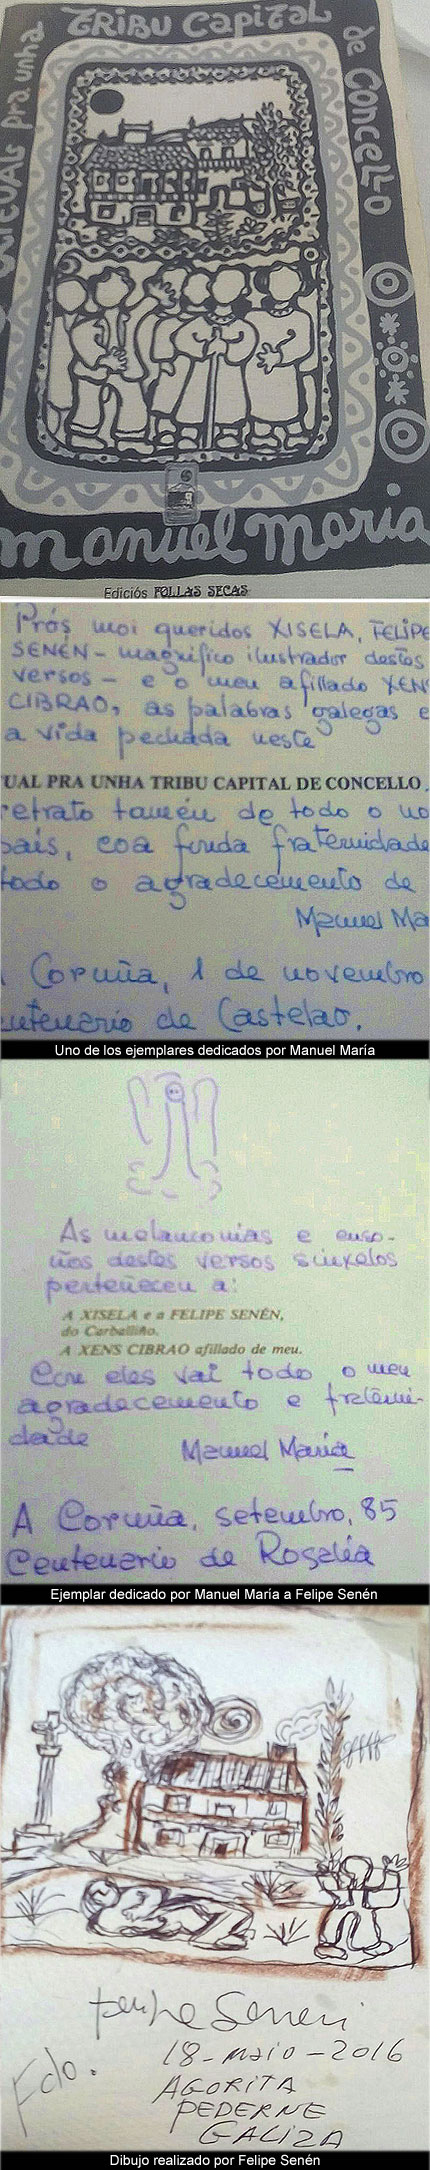 pra unha
TRIBU CAPITAL
de Concello
manuel maria
Ediciós FOLLAS SECAS
Prós moi queridos XISELA, FELIPE
SENÉN - magnífico ilustrador destos
versos - e ó meu afillado XEN
CIBRAO, as palabras galegas e
a vida pechada neste
UAL PRA UNHA TRIBU CAPITAL DE CONCELLO,
retrato tamén de todo o no
país, coa fonda fraternidade
todo o agradecemento de
Manuel Ma
A Coruña, 1 de novembro
centenario de Castelao.
Uno de los ejemplares dedicados por Manuel María
As melanconias e enso-
ños destes versos sinxelos
perteñecen a:
A XISELA e a FELIPE SENÉN,
do Carballiño.
A XENS CIBRAO afillado de meu.
Con eles vai todo o meu
agradecemento e fraterni-
dade
Manuel María
A Coruña, setembro, 85
Centenario de Rosalía
Ejemplar dedicado por Manuel María a Felipe Senén
Felipe Senén
Fdo.
18-maio-2016
AGORITA
PEDERNE
GALIZA
Dibujo realizado por Felipe Senén